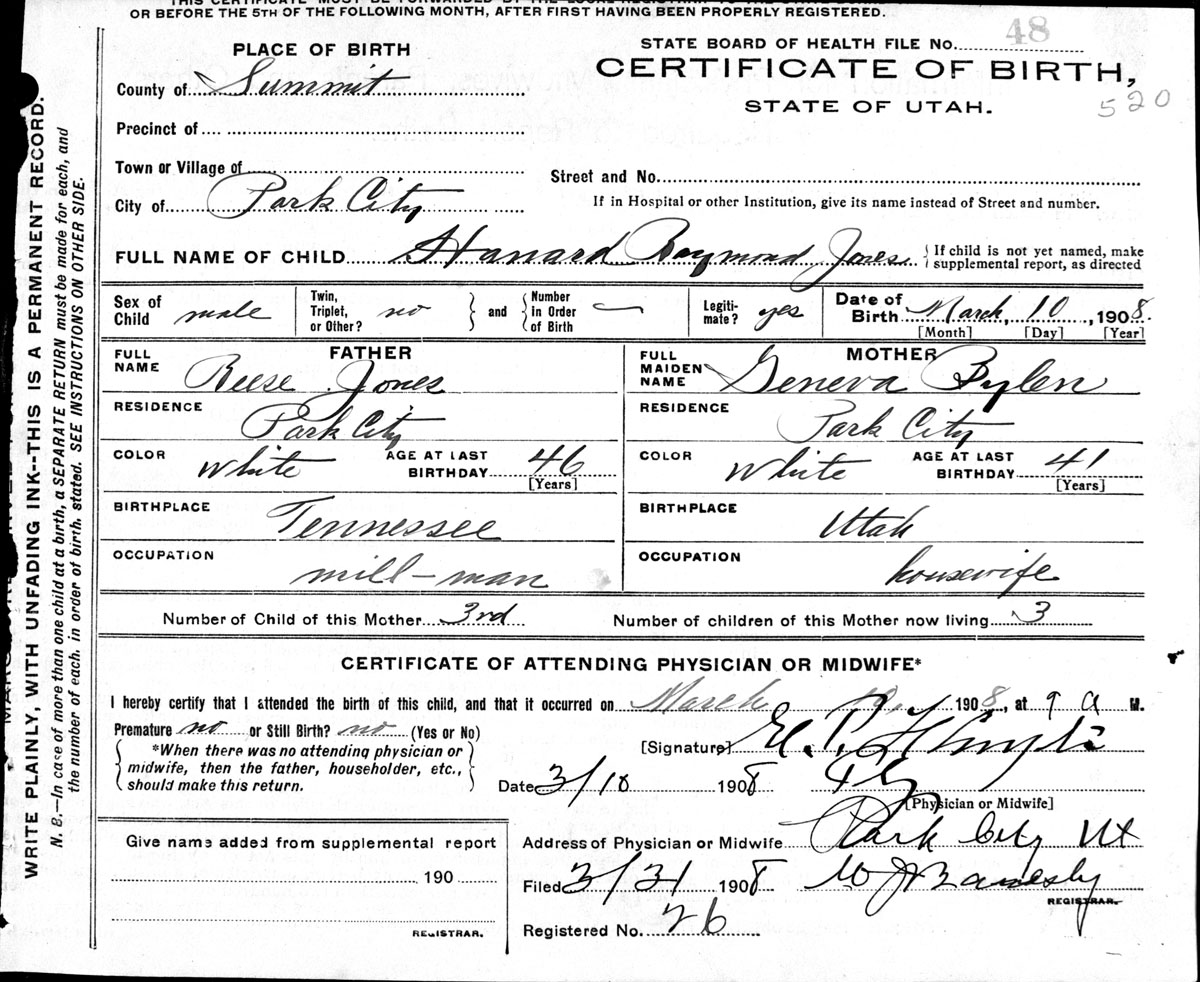 OR BEFORE THE 5TH OF THE FOLLOWING MONTH, AFTER FIRST HAVING BEEN PROPERLY REGISTERED.
PLACE OF BIRTH
STATE BOARD OF HEALTH FILE No. 48
CERTIFICATE OF BIRTH,
STATE OF UTAH.
520
County of Summit
Precinct of
Town or Village of
Street and No.
City of Park City
If in Hospital or other Institution, give its name instead of Street and number.
FULL NAME OF CHILD Raymond Jones
If child is not yet named, make
supplemental report, as directed
Sex of Child male
Twin, Triplet, or Other? no
and
Number in Order of Birth
Legiti-mate? yes
Date of Birth March, 10, 1908.
[Month] [Day] [Year]
FATHER
FULL NAME Reese Jones
MOTHER
FULL MAIDEN NAME Geneva
RESIDENCE Park City
RESIDENCE Park City
COLOR White AGE AT LAST BIRTHDAY 46 [Years]
COLOR White AGE AT LAST BIRTHDAY 41 [Years]
BIRTHPLACE Tennessee
BIRTHPLACE Utah
OCCUPATION mill-man
OCCUPATION housewife
Number of Child of this Mother 3rd
Number of children of this Mother now living 3
CERTIFICATE OF ATTENDING PHYSICIAN OR MIDWIFE*
I hereby certify that I attended the birth of this child, and that it occurred on March 10, 1908, at 9 a M.
Premature no or Still Birth? no (Yes or No)
*When there was no attending physician or
midwife, then the father, householder, etc.,
should make this return.
[Signature]
Date 3/10 1908
[Physician or Midwife]
Give name added from supplemental report
190
REGISTRAR.
Address of Physician or Midwife Park City Ut
Filed 3/31 1908
REGISTRAR.
Registered No. 26
WRITE PLAINLY, WITH UNFADING INK--THIS IS A PERMANENT RECORD.
N. B.—In case of more than one child at a birth, a SEPARATE RETURN must be made for each, and
the number of each, in order of birth, stated. SEE INSTRUCTIONS ON OTHER SIDE.